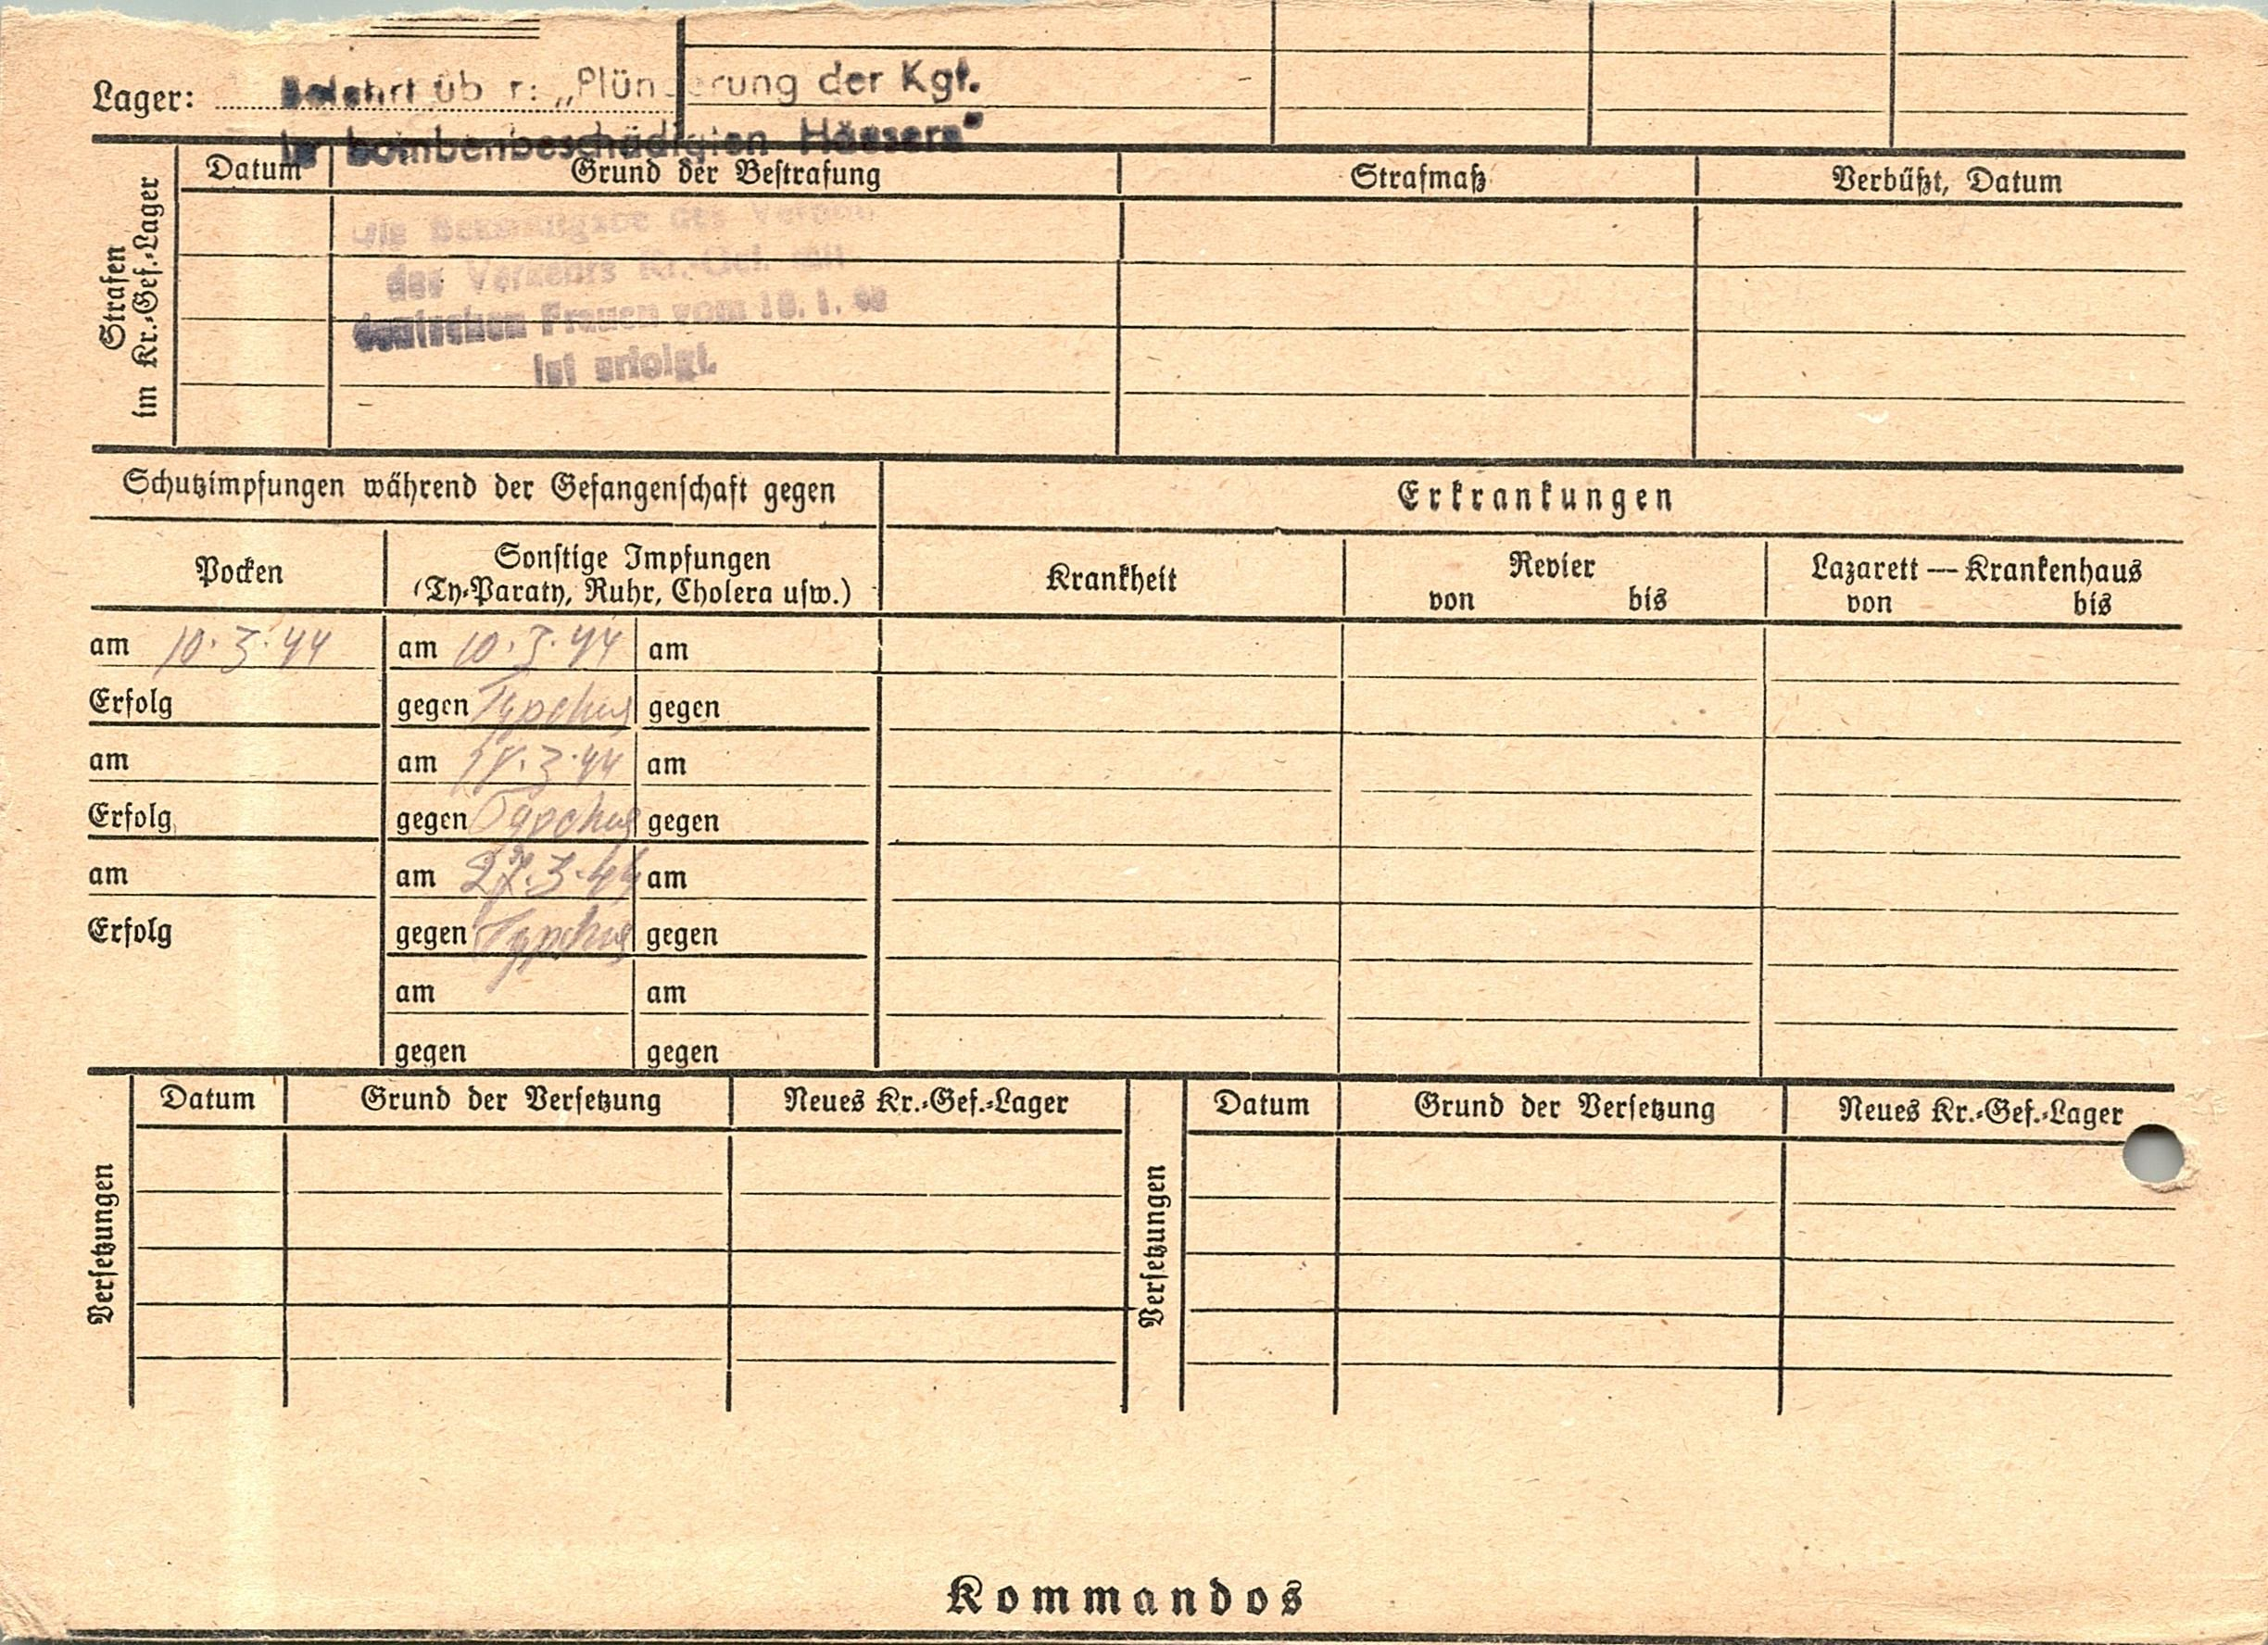 Lager:
Belehrt über: „Plünderung der Kgf.
in bombenbeschädigten Häusern"
Strafen
im Kr.-Gef.-Lager
Datum Grund der Bestrafung Strafmaß Verbüßt, Datum
des Verkehrs Kr.-Gef. mit
deutschen Frauen vom 18. 1.
ist erfolgt.
Schutzimpfungen während der Gefangenschaft gegen
Erkrankungen
Pocken
Sonstige Impfungen
(Ty-Paraty, Ruhr, Cholera usw.)
Krankheit
Revier
von bis
Lazarett — Krankenhaus
von bis
am 10.3.44 am 10.3.44 am
Erfolg gegen Typchus gegen
am am .3.44 am
Erfolg gegen Typchus gegen
am am 27.3.44 am
Erfolg gegen Typchus gegen
am am
gegen gegen
Versetzungen
Datum Grund der Versetzung Neues Kr.-Gef.-Lager
Versetzungen
Datum Grund der Versetzung Neues Kr.-Gef.-Lager
Kommandos